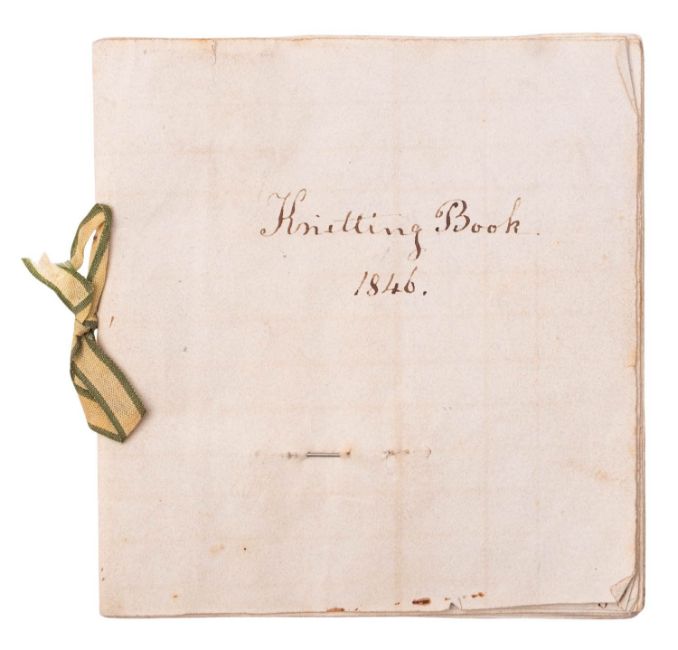 Knitting Book.
1846.